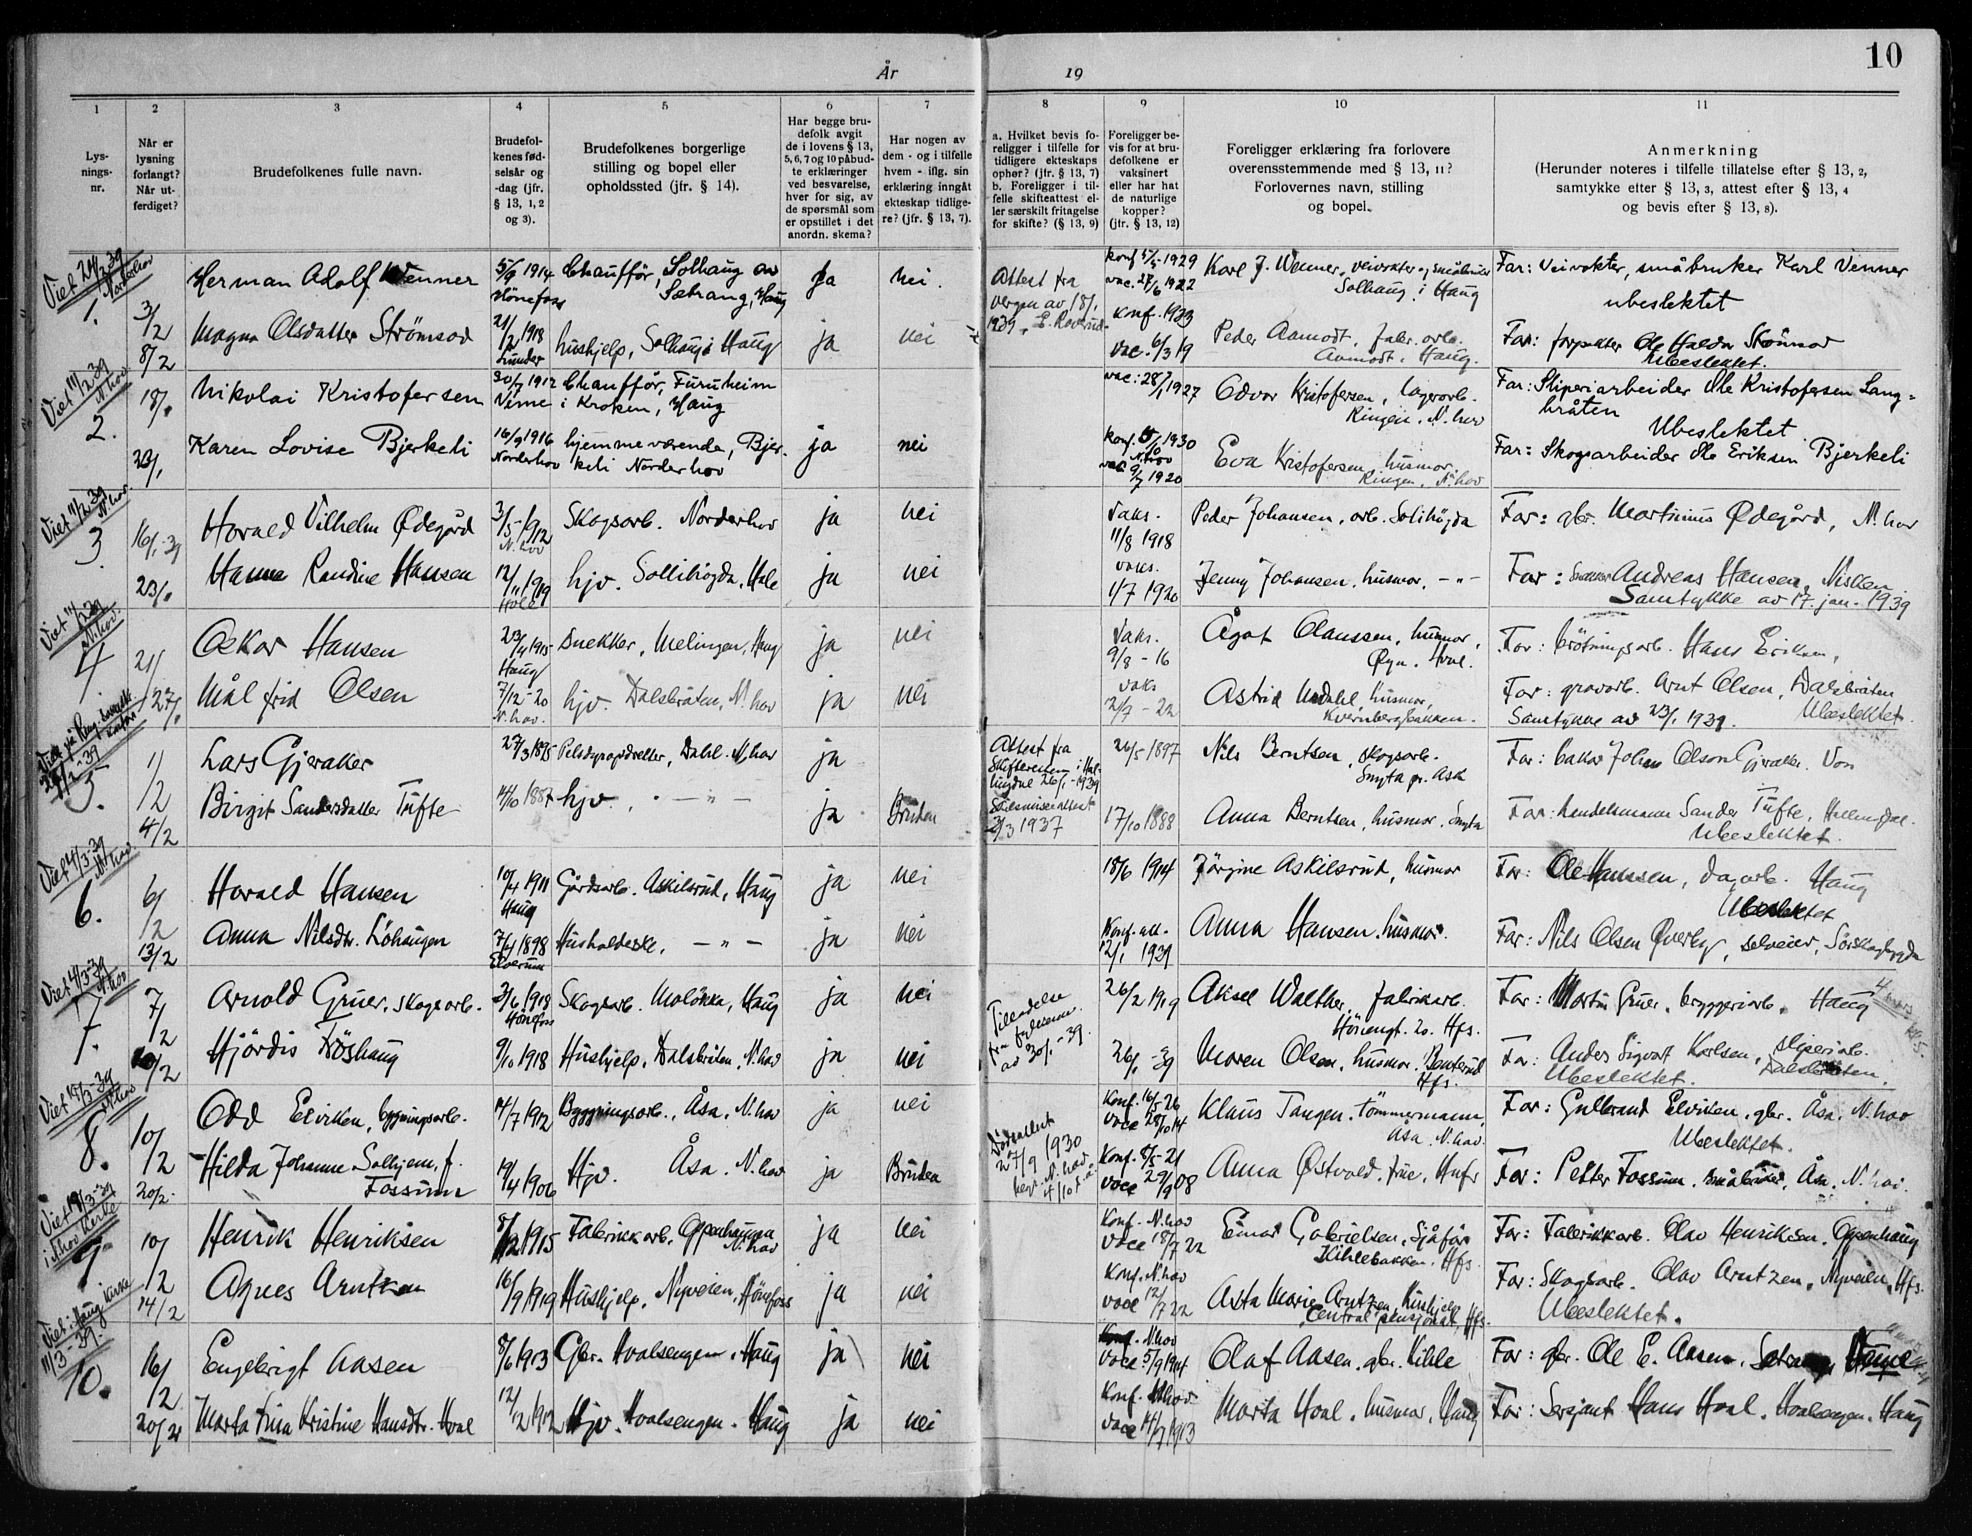 År
19
10
1
2
3
4
5
6
7
8
9
10
11
Lys-
nings-
nr.
Når er
lysning
forlangt?
Når ut-
ferdiget?
Brudefolkenes fulle navn.
Brudefol-
kenes fød-
selsår og
-dag (jfr.
§ 13, 1, 2
og 3).
Brudefolkenes borgerlige
stilling og bopel eller
opholdssted (jfr. § 14).
Har begge bru-
defolk avgit
de i lovens § 13,
5, 6, 7 og 10 påbud-
te erklæringer
ved besvarelse,
hver for sig, av
de spørsmål som
er opstillet i det
anordn. skema?
Har nogen av
dem - og i tilfelle
hvem - iflg. sin
erklæring inngått
ekteskap tidlige-
re? (jfr. § 13, 7).
a. Hvilket bevis fo-
religger i tilfelle for
tidligere ekteskaps
ophør? (jfr. § 13, 7)
b. Foreligger i til-
felle skifteattest el-
ler særskilt fritagelse
for skifte? (§ 13, 9)
Foreligger be-
vis for at bru-
defolkene er
vaksinert
eller har hat
de naturlige
kopper?
(jfr. § 13, 12)
Foreligger erklæring fra forlovere
overensstemmende med § 13, 11?
Forlovernes navn, stilling
og bopel.
Anmerkning
(Herunder noteres i tilfelle tillatelse efter § 13, 2,
samtykke etter § 13, 3, attest efter § 13, 4
og bevis efter § 13, 8).
1. 3/2 Herman Adolf Wenner 5/9 1914 Hönefoss Chaufför, Solhaug av Setrang, Haug ja nei Attest fra Konf 1929 vac. 27/6 1922 Karl J. Wenner, veivokter og småbruker Solhaug i Haug Far: Veivokter, småbruker Karl Venner
ubeslektet
8/2 Magna Olsdatter Strömsod 1918 Lunder hushjelp, Solhaug i Haug ja nei konf. 1933 vac. 6/3 19 Peder Aamodt, fabr. arb. Aamodt, Haug. Far: forpakter Ole Haldor Strömsod
Ubeslektet.
Viet 11/2 39 N.hov
2. 18/1 Nikolai Kristofersen 1912 Chaufför, Furuheim i Kroken, Haug vac: 28/1 1927 Odvar Kristofersen, lagerarb. Ringen, N. hov Far: Sliperiarbeider Ole Kristofersen Lang-
bråten
Ubeslektet
23/1 Karen Lovise Bjerkeli 16/9 1916 Norderhov hjemmeværende, Bjer-
keli Norderhov ja nei konf. 1930 N.hov vac. 9/7 1920 Eva Kristofersen, husmor, Ringen, N.hov Far: Skogsarbeider Ole Eriksen Bjerkeli
Viet 11/2 39 N.hov
3. 16/1-39 Harald Vilhelm Ødegård 3/5 1912 N.hov Skogsarb. Norderhov ja nei Vaks. 11/8 1918 Peder Johansen, arb. Sollihögda Far: gbr. Martinius Ødegård, N.hov
23/1 Hanna Randine Hansen 12/11 1919 Hole hjv. Sollihögda, Hole ja nei vaks. 1/7 1920 Jenny Johansen, husmor, - " - Far: Andreas Hansen,
Samtykke av 17. jan. 1939
4 21/1 Oskar Hansen 23/4 1915 Haug Snekker, Melingen, Haug ja nei Vaks. 9/8 - 16 Ågot Olaussen, husmor, Øyn, Hval. Far: brötningsarb. Hans Eriksen,
27/1 Målfrid Olsen 7/12-20 N.hov. hjv. Dalsbråten, N.hov ja nei vaks 2/7 - 22 Astrid Medahl, husmor, Kvernbergbakken. Far: gravarb. Arnt Olsen, Dalsbråten
Samtykke av 23/1 1939. Ubeslektet.
5. 1/2 Lars Gjeraker 27/3 1895 Pelsdyropdretter, Dahl. N.hov ja Attest fra 26/5 1897 Nils Berntsen, skogsarb. Smyta pr. Ask Far: bakar Johan Olson Gjeraker. Von
4/2 Birgit Sandersdatter Tufte 14/10 1887 hjv. - " - ja Bruden 2/3 1937 17/10 1888 Anna Berntsen, husmor, Smyta Far: handelsmann Sander Tufte, Hallingdal.
Ubeslektet.
Viet 4/3-39 N.hov
6. 6/2 Harald Hansen 10/4 1911 Haug Gårdsarb. Askilsrud, Haug ja nei 18/6 1914 Jörgine Askilsrud, husmor Far: Ole Hanssen, dagarb. Haug
Ubeslektet
13/2 Anna Nilsdtr. Löhaugen 7/4 1898 Elverum Husholderske, - " - ja nei Konf. att. 12/1 1939 Anna Hansen, husmor. Far: Nils Olsen Øverby, selveier, Sörskogbygda
Viet 4/3-39 N.hov
7. 7/2 Arnold Gruer, skogsarb. 3/6 1918 Hönefoss Skogsarb. Molökka, Haug ja nei Tilladelse fra fylkesm. av 30/1-39. 26/2 1919 Aksel Walther, fabrikarb. Hönengt. 20. Hfs. Far: Martin Gruer, bryggeriarb. Haug
10/2 Hjördis Röshaug 9/10 1918 Hushjelp, Dalsbråten, N.hov ja nei 26/1 - 39 Maren Olsen, husmor, Benterud Hfs. Far: Anders Sigvart Karlsen, sliperiarb.
Ubeslektet. Dalsbråten.
8. 10/2 Odd Elviken, bygningsarb. 14/7 1912 Bygningsarb., Åsa, N.hov ja nei Konf. 16/5-26 vacc 28/10 14 Klaus Tangen, tömmermann, Åsa. N.hov. Far: Gulbrand Elviken, gbr. Åsa, N.hov
Ubeslektet.
20/2 Hilda Johanne Solhjem, f. Fossum 19/4 1906 Hjv. Åsa. N.hov ja Bruden Dödsattest 27/9 1930 Konf. 8/5-21 vacc 29/9 08 Anna Østvold, frue, Hnfs Far: Petter Fossum, småbruker, Åsa, N.hov.
Viet 19/3-39 i N.hov kirke
9. 10/2 Henrik Henriksen 8/12 1915 Fabrikkarb. Oppenhaugen N.hov ja nei Konf. N.hov vacc 18/7 22 Einar Gabrielsen, Sjåför Kihlebakken, Hfs. Far: Fabrikkarb. Olav Henriksen, Oppenhaug
14/2 Agnes Arntzen 16/9 1919 Hushjelp, Nyveien, Hönefoss ja nei Konf. N.hov vacc 12/7 22 Asta Marie Arntzen, Hushjelp, Central pensjonat, Hfs. Far: Skogsarb. Olav Arntzen, Nyveien, Hfs.
Ubeslektet.
Viet i Haug kirke 11/3-39.
10. 16/2 Engebrigt Aasen 8/6 1913 Gbr. Hvalsengen, Haug ja nei Konf. N.hov vacc 5/9 1914 Olaf Aasen, gbr. Kihle Far: gbr. Ole E. Aasen,
20/2 Marta Hansdtr. Hval 12/12 1912 Hjv. Hvalsengen. Haug ja nei Konf. N.hov vacc 14/7 1913 Marta Hval, husmor, Haug Far: Sersjant Hans Hval, Hvalsengen, Haug